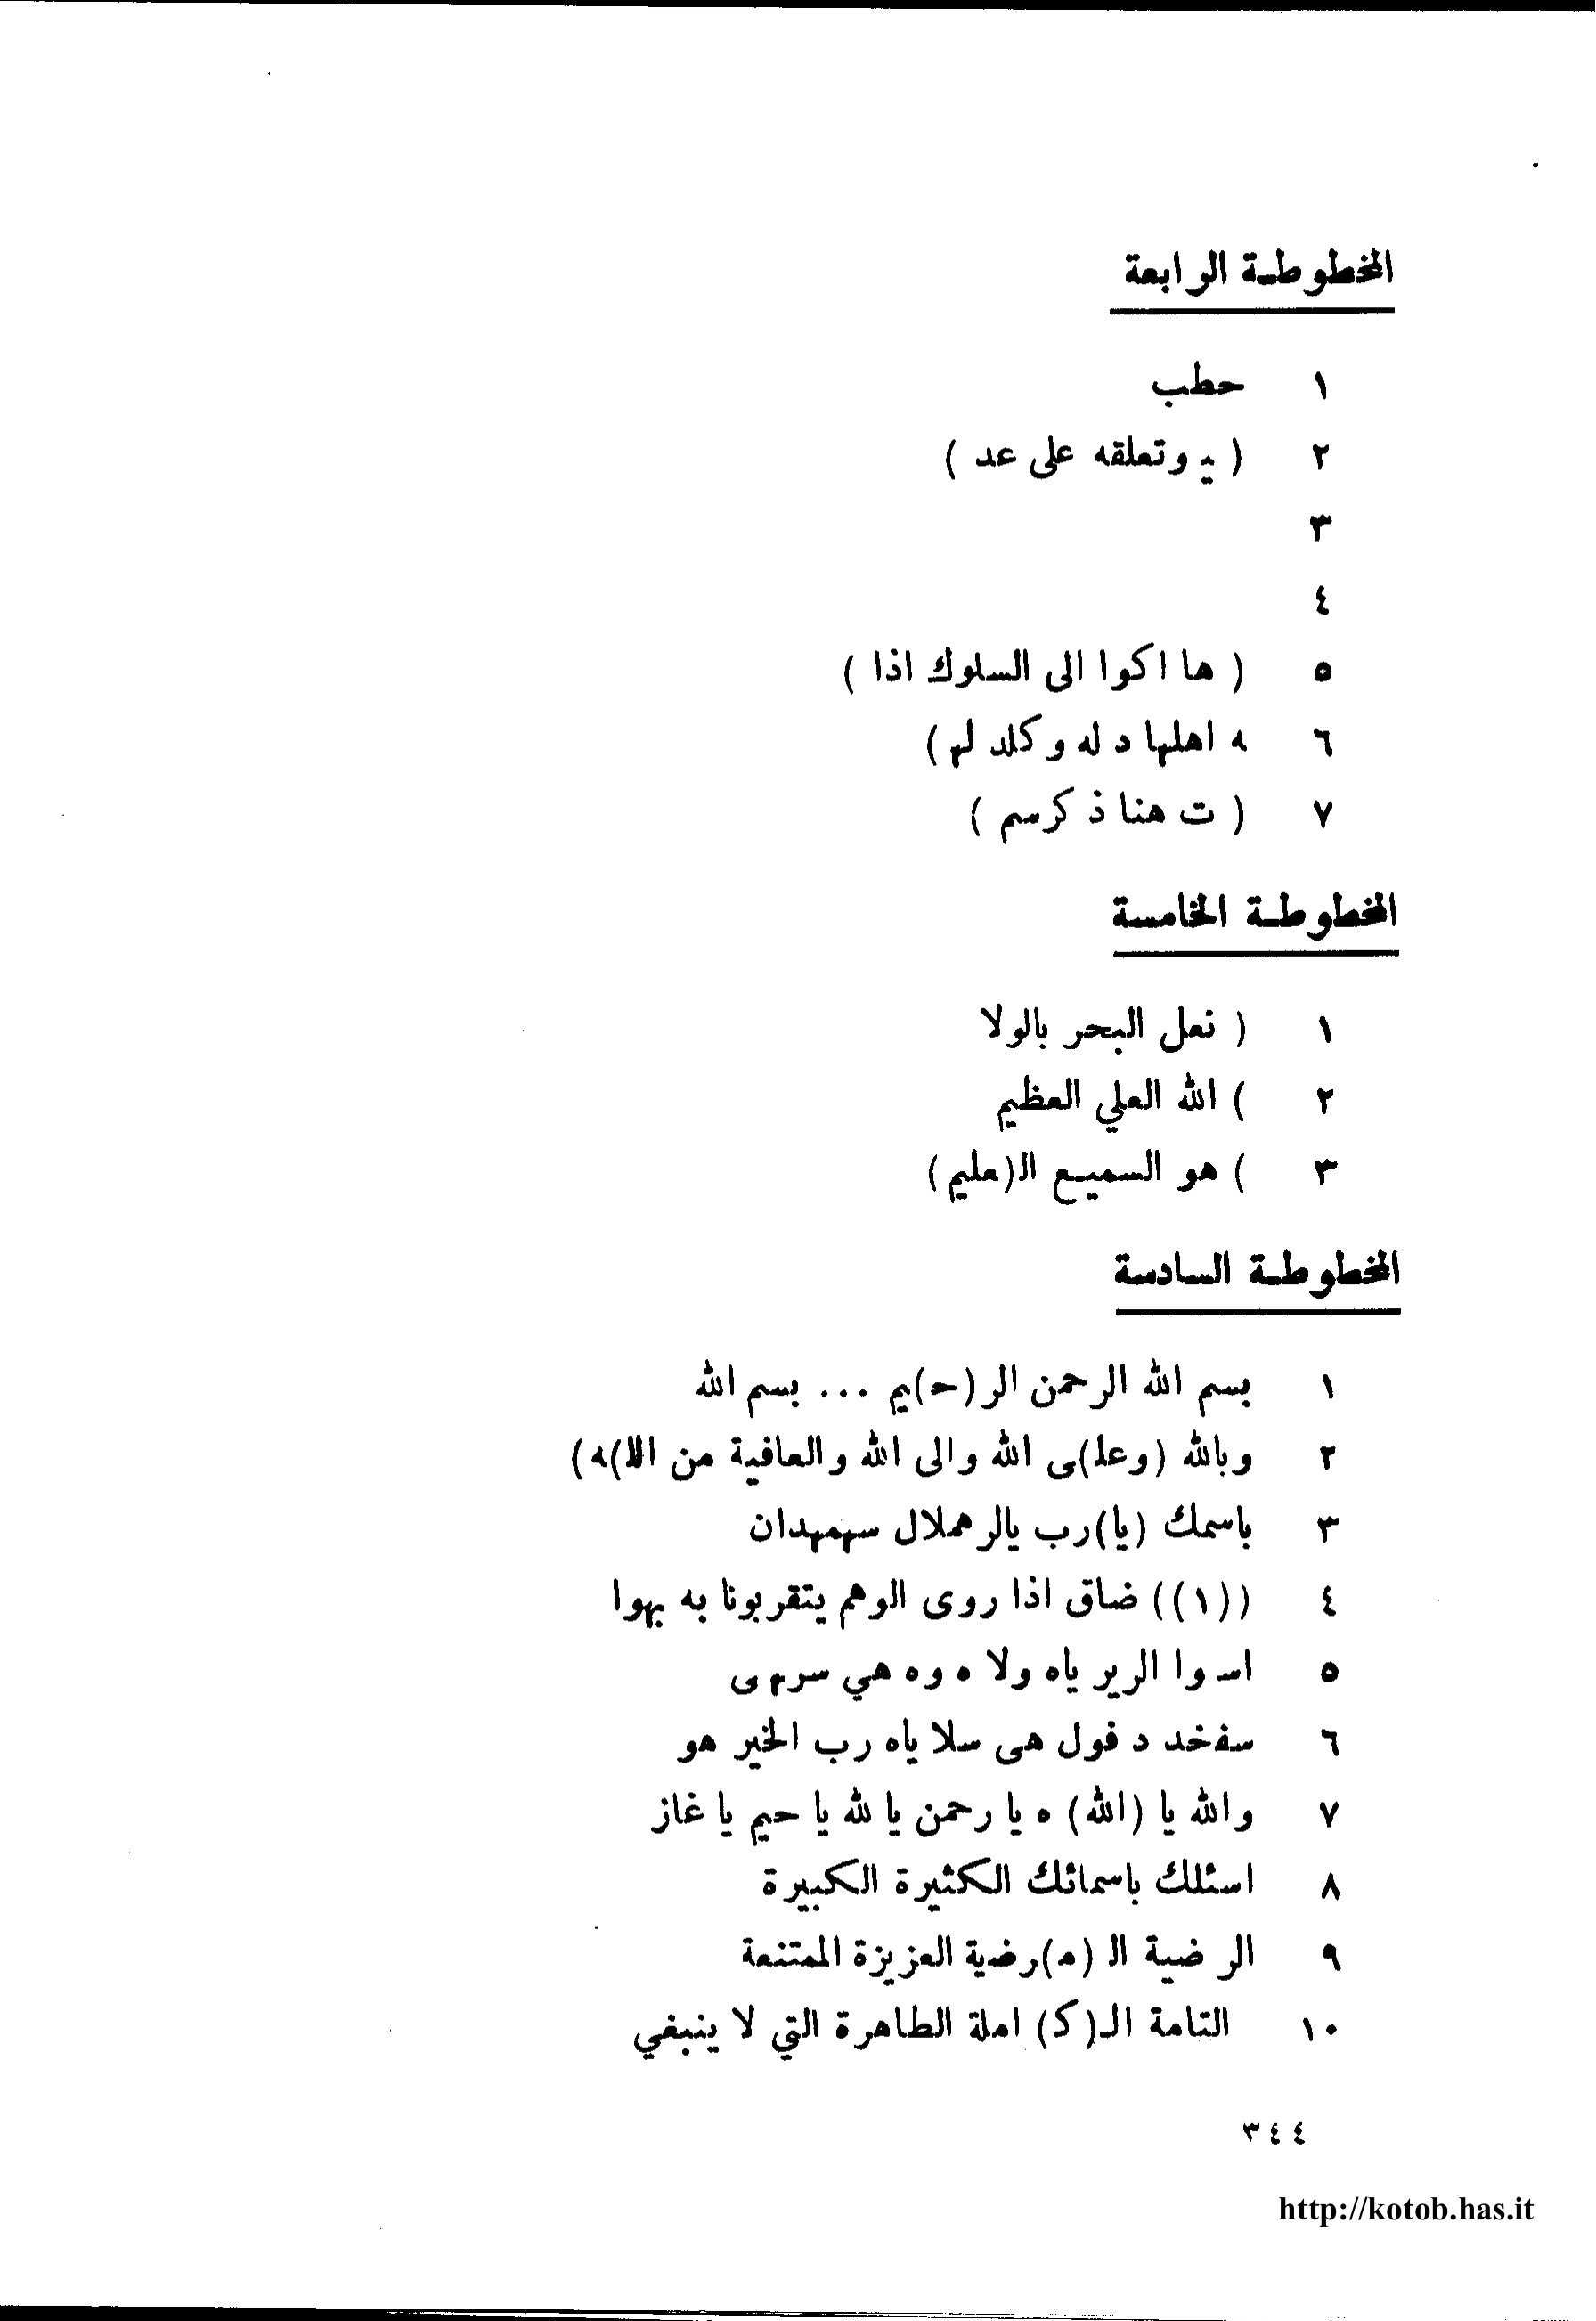 المخطوطة الرابعة
١ حطب
٢ ( يـ وتعلقه على عد )
٣
٤
٥ ( ها اكوا الى السلوك اذا )
٦ ه اهلها د له و كلد لها)
٧ ( ت هنا ذ كرسم )
المخطوطة الخامسة
١ ( نعل البحر بالولا
٢ ) الله العلي العظيم
٣ ) هو السميع الـ(عليم)
المخطوطة السادسة
١ بسم الله الرحمن الر(حـ)يم ... بسم الله
٢ وبالله (وعلـ)ى الله والى الله والعافية من اللا)ه)
٣ باسمك (يا)رب يالرهملال سهمهدان
٤ ((١)) ضاق اذا روى الوهم يتقربونا به بهوا
٥ اسـ وا الرير ياه ولا ه وه هي سرہى
٦ سفخد د فول هى سلا ياه رب الخير هو
٧ والله يا (الله) ه يا رحمن يا لله يا حيم يا غاز
٨ اسئلك باسمائك الكثيرة الكبيرة
٩ الر ضية الـ (مـ)رضية العزيزة الممتنعة
١٠ التامة الـ(كـ) املة الطاهرة التي لا ينبغي
٣٤٤
http://kotob.has.it